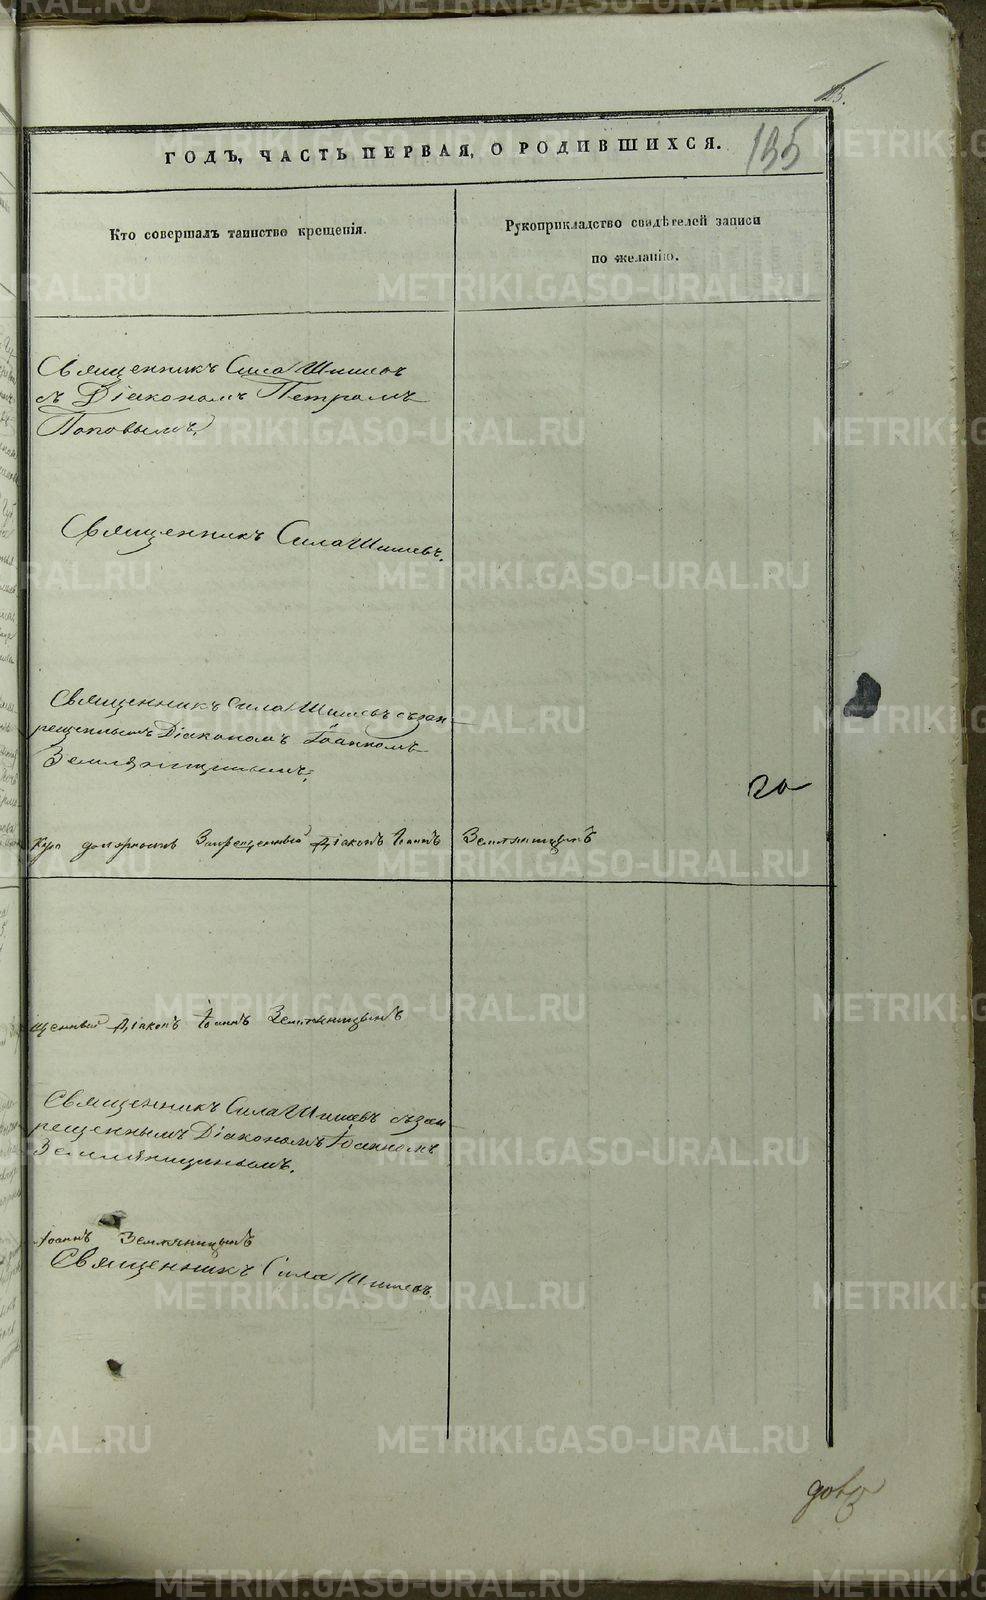 23.
135
ГОДЪ, ЧАСТЬ ПЕРВАЯ, О РОДИВШИХСЯ.
Кто совершалъ таинство крещенія.
Рукоприкладство свидѣтелей записи
по желанію.
Священникъ Сила Шишевъ
съ Діакономъ Петромъ
Поповымъ.
Священникъ Сила Шишевъ.
Священникъ Сила Шишевъ съ зап-
рещеннымъ Діакономъ Іоанномъ
Земляницинымъ.
должность Запрещенный Діаконъ Іоаннъ Земляницынъ
щенный Діаконъ Іоаннъ Земляницынъ
Священникъ Сила Шишевъ съ зап-
рещеннымъ Діакономъ Іоанномъ
Земляницинымъ.
Іоаннъ Земляницынъ
Священникъ Сила Шишевъ.
METRIKI.GASO-URAL.RU